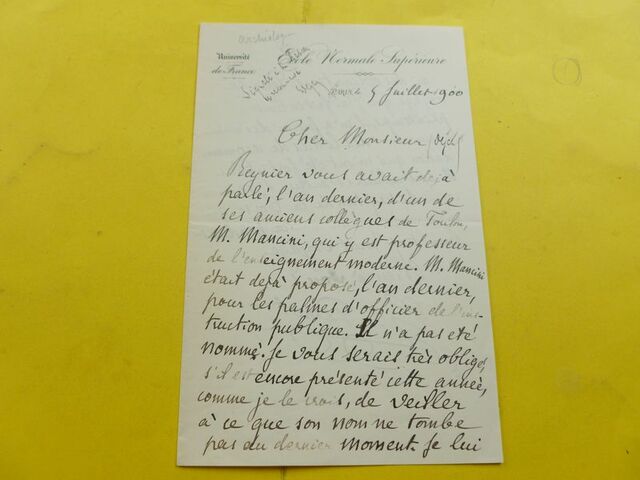 Université
de France
École Normale Supérieure
5 Juillet 1900
Cher Monsieur
Reynier vous avait déjà
parlé, l'an dernier, d'un de
ses anciens collègues de Toulon,
M. Mancini, qui y est professeur
de l'enseignement moderne. M. Mancini
était déjà proposé, l'an dernier,
pour les palmes d'officier de l'ins-
truction publique. Il n'a pas été
nommé. Je vous serais très obligé,
s'il est encore présenté cette année,
comme je le crois, de veiller
à ce que son nom ne tombe
pas au dernier moment. Je lui